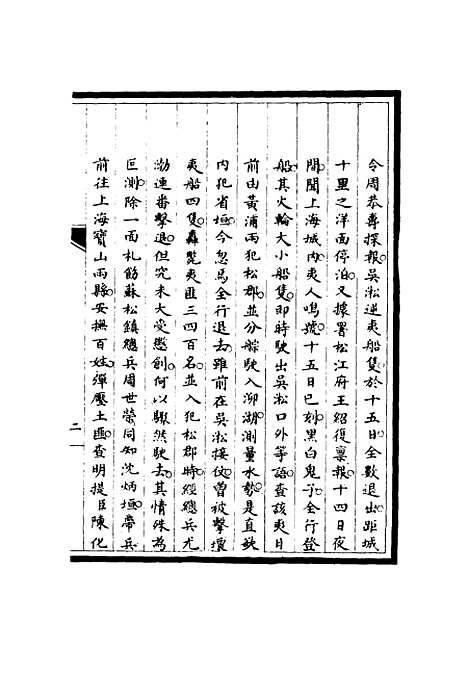 令周恭壽探報吳淞逆夷船隻於十五日全數退出距城
十里之洋面停泊又據署松江府王紹復稟報十四日夜
間聞上海城內夷人鳴號十五日已刻黑白鬼子全行登
船其火輪大小船隻即時駛出吳淞口外等語查該夷日
前由黃浦兩犯松郡並分䑸駛入泖湖測量水勢是直欲
內犯省垣今忽焉全行退去雖前在吳淞接仗曾被擊壞
夷船四隻轟斃夷匪三四百名並入犯松郡時經總兵尤
渤連番擊退但究未大受懲創何以驟然駛去其情殊為
叵測除一面札飭蘇松鎮總兵周世榮同知沈炳垣帶兵
前往上海寶山兩縣安撫百姓彈壓土匪查明提臣陳化
二